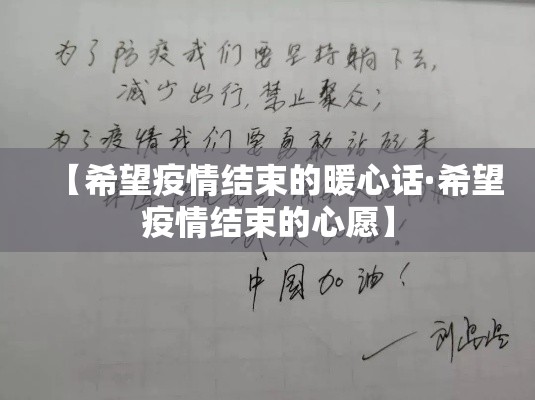 为了防疫我们要坚持躺下去,
减少出行,禁止聚众;
为了疫情我们要勇敢站起来,
【希望疫情结束的暖心话·希望
疫情结束的心愿】
中国加油!